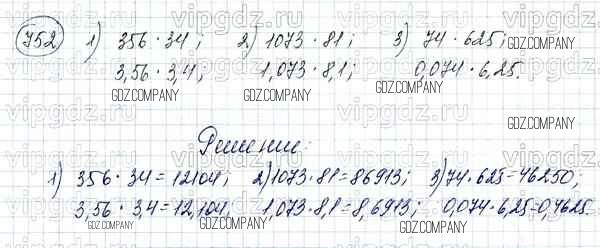 752 1) 356 · 34; 2) 1073 · 81; 3) 74 · 625;
3,56 · 3,4; 1,073 · 8,1; 0,074 · 6,25.
GDZ.COMPANY GDZ.COMPANY GDZ.COMPANY
Решение:
1) 356 · 34 = 12104; 2) 1073 · 81 = 86913; 3) 74 · 625 = 46250;
3,56 · 3,4 = 12,104; 1,073 · 8,1 = 8,6913; 0,074 · 6,25 = 0,4625.
GDZ.COMPANY GDZ.COMPANY GDZ.COMPANY
vipgdz.ru